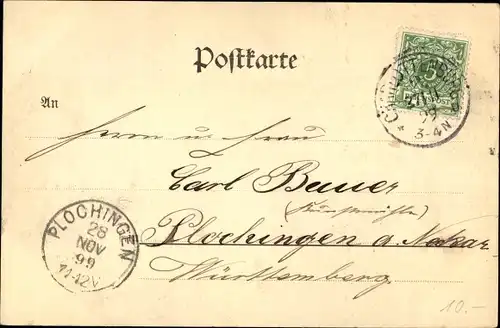 Postkarte
5
CHARLOTTENBURG
27 11
99
3-4N
An
Herrn u. Frau
Carl Bauer
Plochingen a. Neckar
Württemberg.
PLOCHINGEN
28
NOV
99
11-12V
10.-